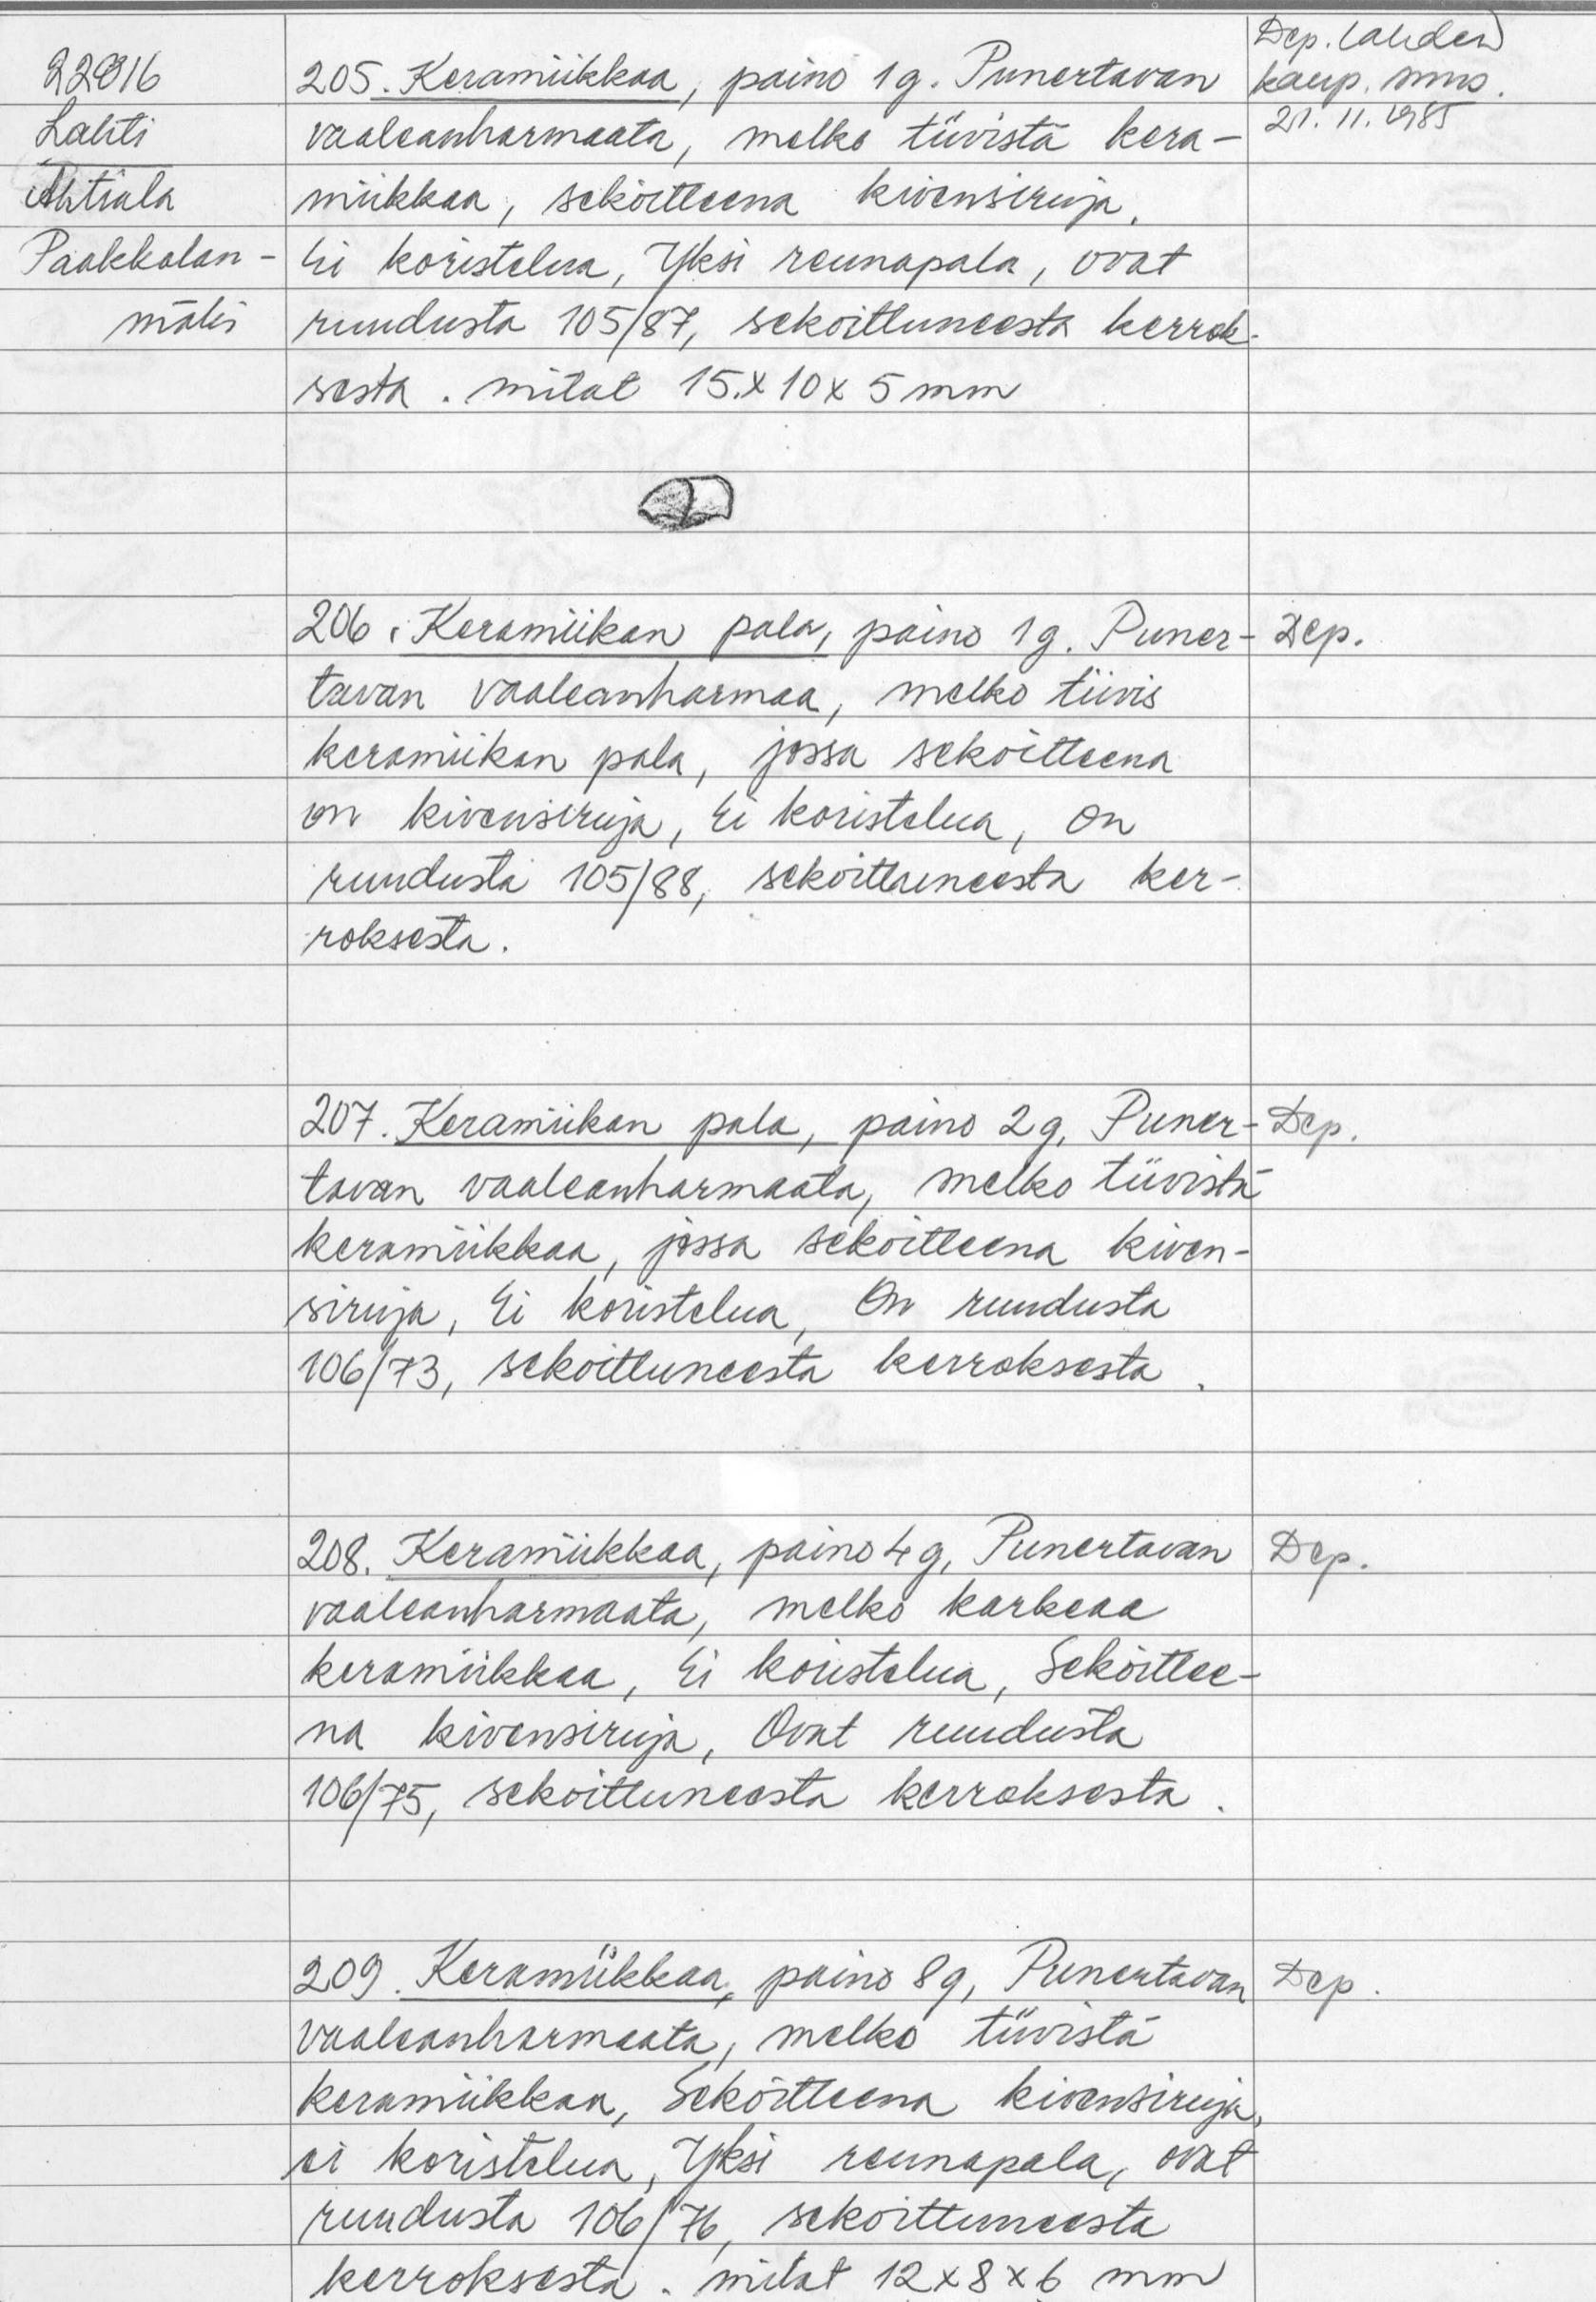 22016
Lahti
Ahtiala
Paakkolan-
mäki
205. Keramiikkaa, paino 1 g. Punertavan
vaaleanharmaata, melko tiivistä kera-
miikkaa, sekoitteena kivensiruja.
Ei koristelua, Yksi reunapala, ovat
ruudusta 105/87, sekoittuneesta kerrok-
sesta. mitat 15 x 10 x 5 mm
Dep. Lahden
kaup. mus.
21.11.1985
206. Keramiikan pala, paino 1 g. Puner-
tavan vaaleanharmaa, melko tiivis
keramiikan pala, jossa sekoitteena
on kivensiruja, Ei koristelua, On
ruudusta 105/88, sekoittuneesta ker-
roksesta.
Dep.
207. Keramiikan pala, paino 2 g, Puner-
tavan vaaleanharmaata, melko tiivistä
keramiikkaa, jossa sekoitteena kiven-
siruja, Ei koristelua, On ruudusta
106/73, sekoittuneesta kerroksesta.
Dep.
208. Keramiikkaa, paino 4 g, Punertavan
vaaleanharmaata, melko karkeaa
keramiikkaa, Ei koristelua, Sekoittee-
na kivensiruja, Ovat ruudusta
106/75, sekoittuneesta kerroksesta.
Dep.
209. Keramiikkaa, paino 8 g, Punertavan
vaaleanharmaata, melko tiivistä
keramiikkaa, Sekoitteena kivensiruja,
ei koristelua, Yksi reunapala, ovat
ruudusta 106/76, sekoittuneesta
kerroksesta. mitat 12 x 8 x 6 mm
Dep.